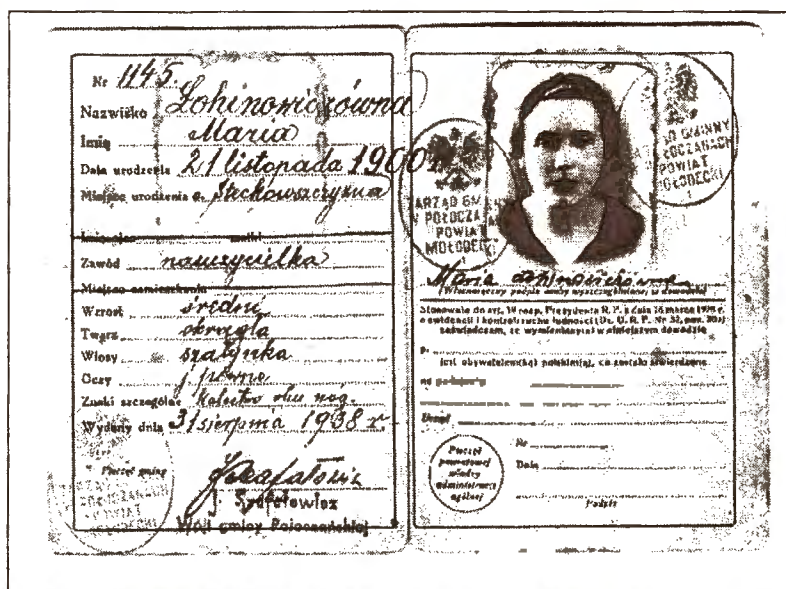 Nr 1145.
Nazwisko Łohinowiczówna
Imię Maria
Data urodzenia 21 listopada 1900 r.
Miejsce urodzenia
Zawód nauczycielka
Miejsce zamieszkania
Wzrost średni
Twarz okrągła
Włosy szatynka
Oczy piwne
Znaki szczególne Kalectwo obu nóg.
Wydany dnia 31 sierpnia 1938 r.
Pieczęć gminy
J. Szafałowicz
Wójt gminy Połoczańskiej
ZARZĄD GMINY
W POŁOCZANACH
POWIAT
MOŁODECKI
1
Maria
Własnoręczny podpis osoby wyszczególnionej w dowodzie
Stosownie do art. 18 rozp. Prezydenta R. P. z dnia 16 marca 1928 r.
o ewidencji i kontroli ruchu ludności (Dz. U. R. P. Nr 32, poz. 309)
zaświadczam, że wymieniony(a) w niniejszym dowodzie
P.
jest obywatelem(ką) polskim(ą), co zostało stwierdzone
na podstawie
Urząd
Nr
Data
Podpis
Pieczęć
powiatowej
władzy
administracji
ogólnej